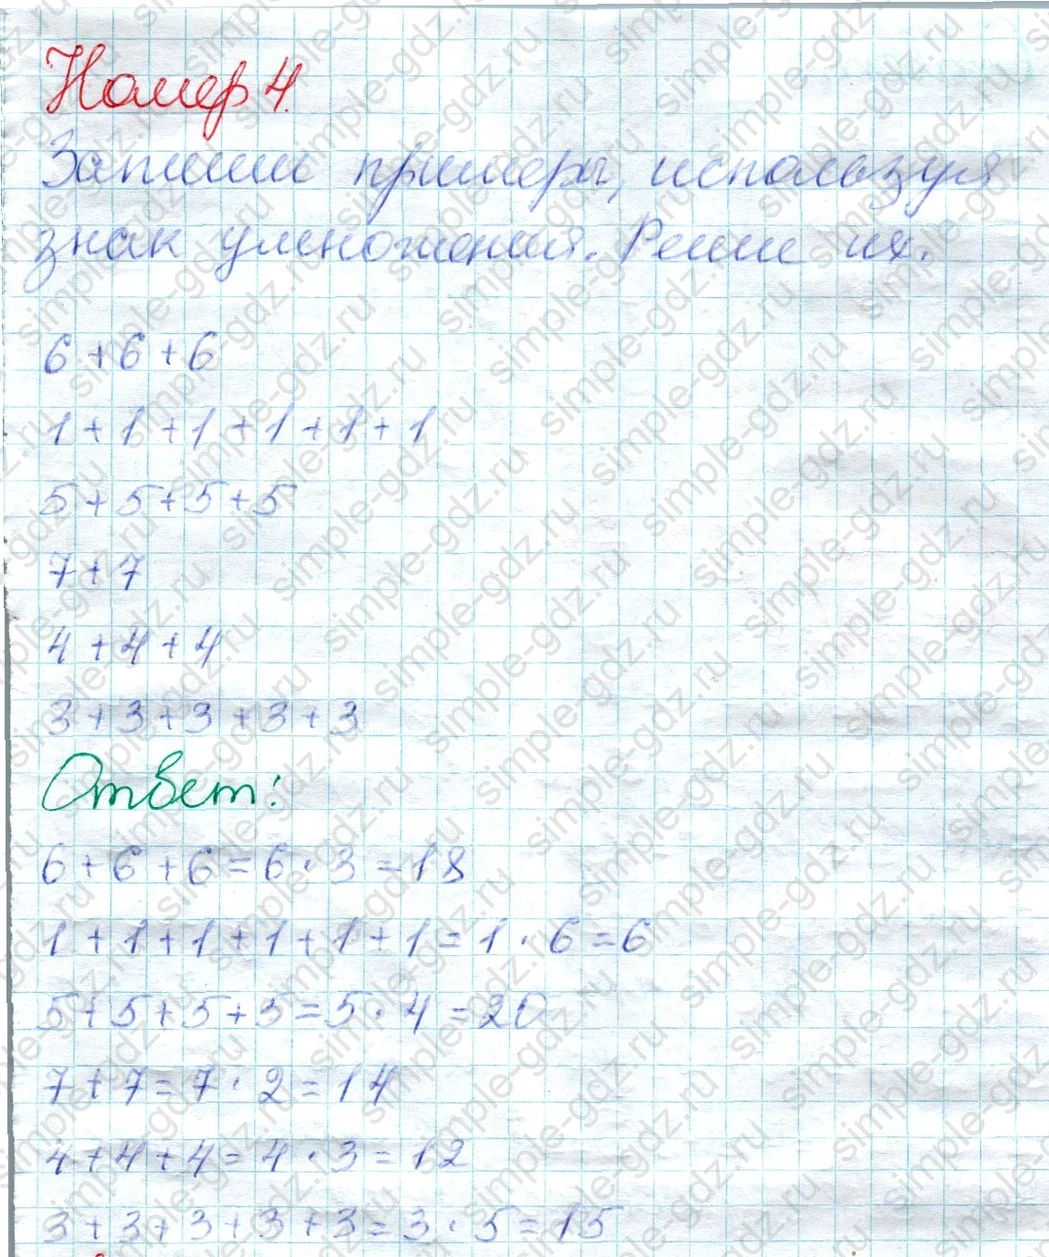 Номер 4.
Запиши примеры, используя
знак умножения. Реши их.
6 + 6 + 6
1 + 1 + 1 + 1 + 1 + 1
5 + 5 + 5 + 5
7 + 7
4 + 4 + 4
3 + 3 + 3 + 3 + 3
Ответ:
6 + 6 + 6 = 6 · 3 = 18
1 + 1 + 1 + 1 + 1 + 1 = 1 · 6 = 6
5 + 5 + 5 + 5 = 5 · 4 = 20
7 + 7 = 7 · 2 = 14
4 + 4 + 4 = 4 · 3 = 12
3 + 3 + 3 + 3 + 3 = 3 · 5 = 15
simple-gdz.ru